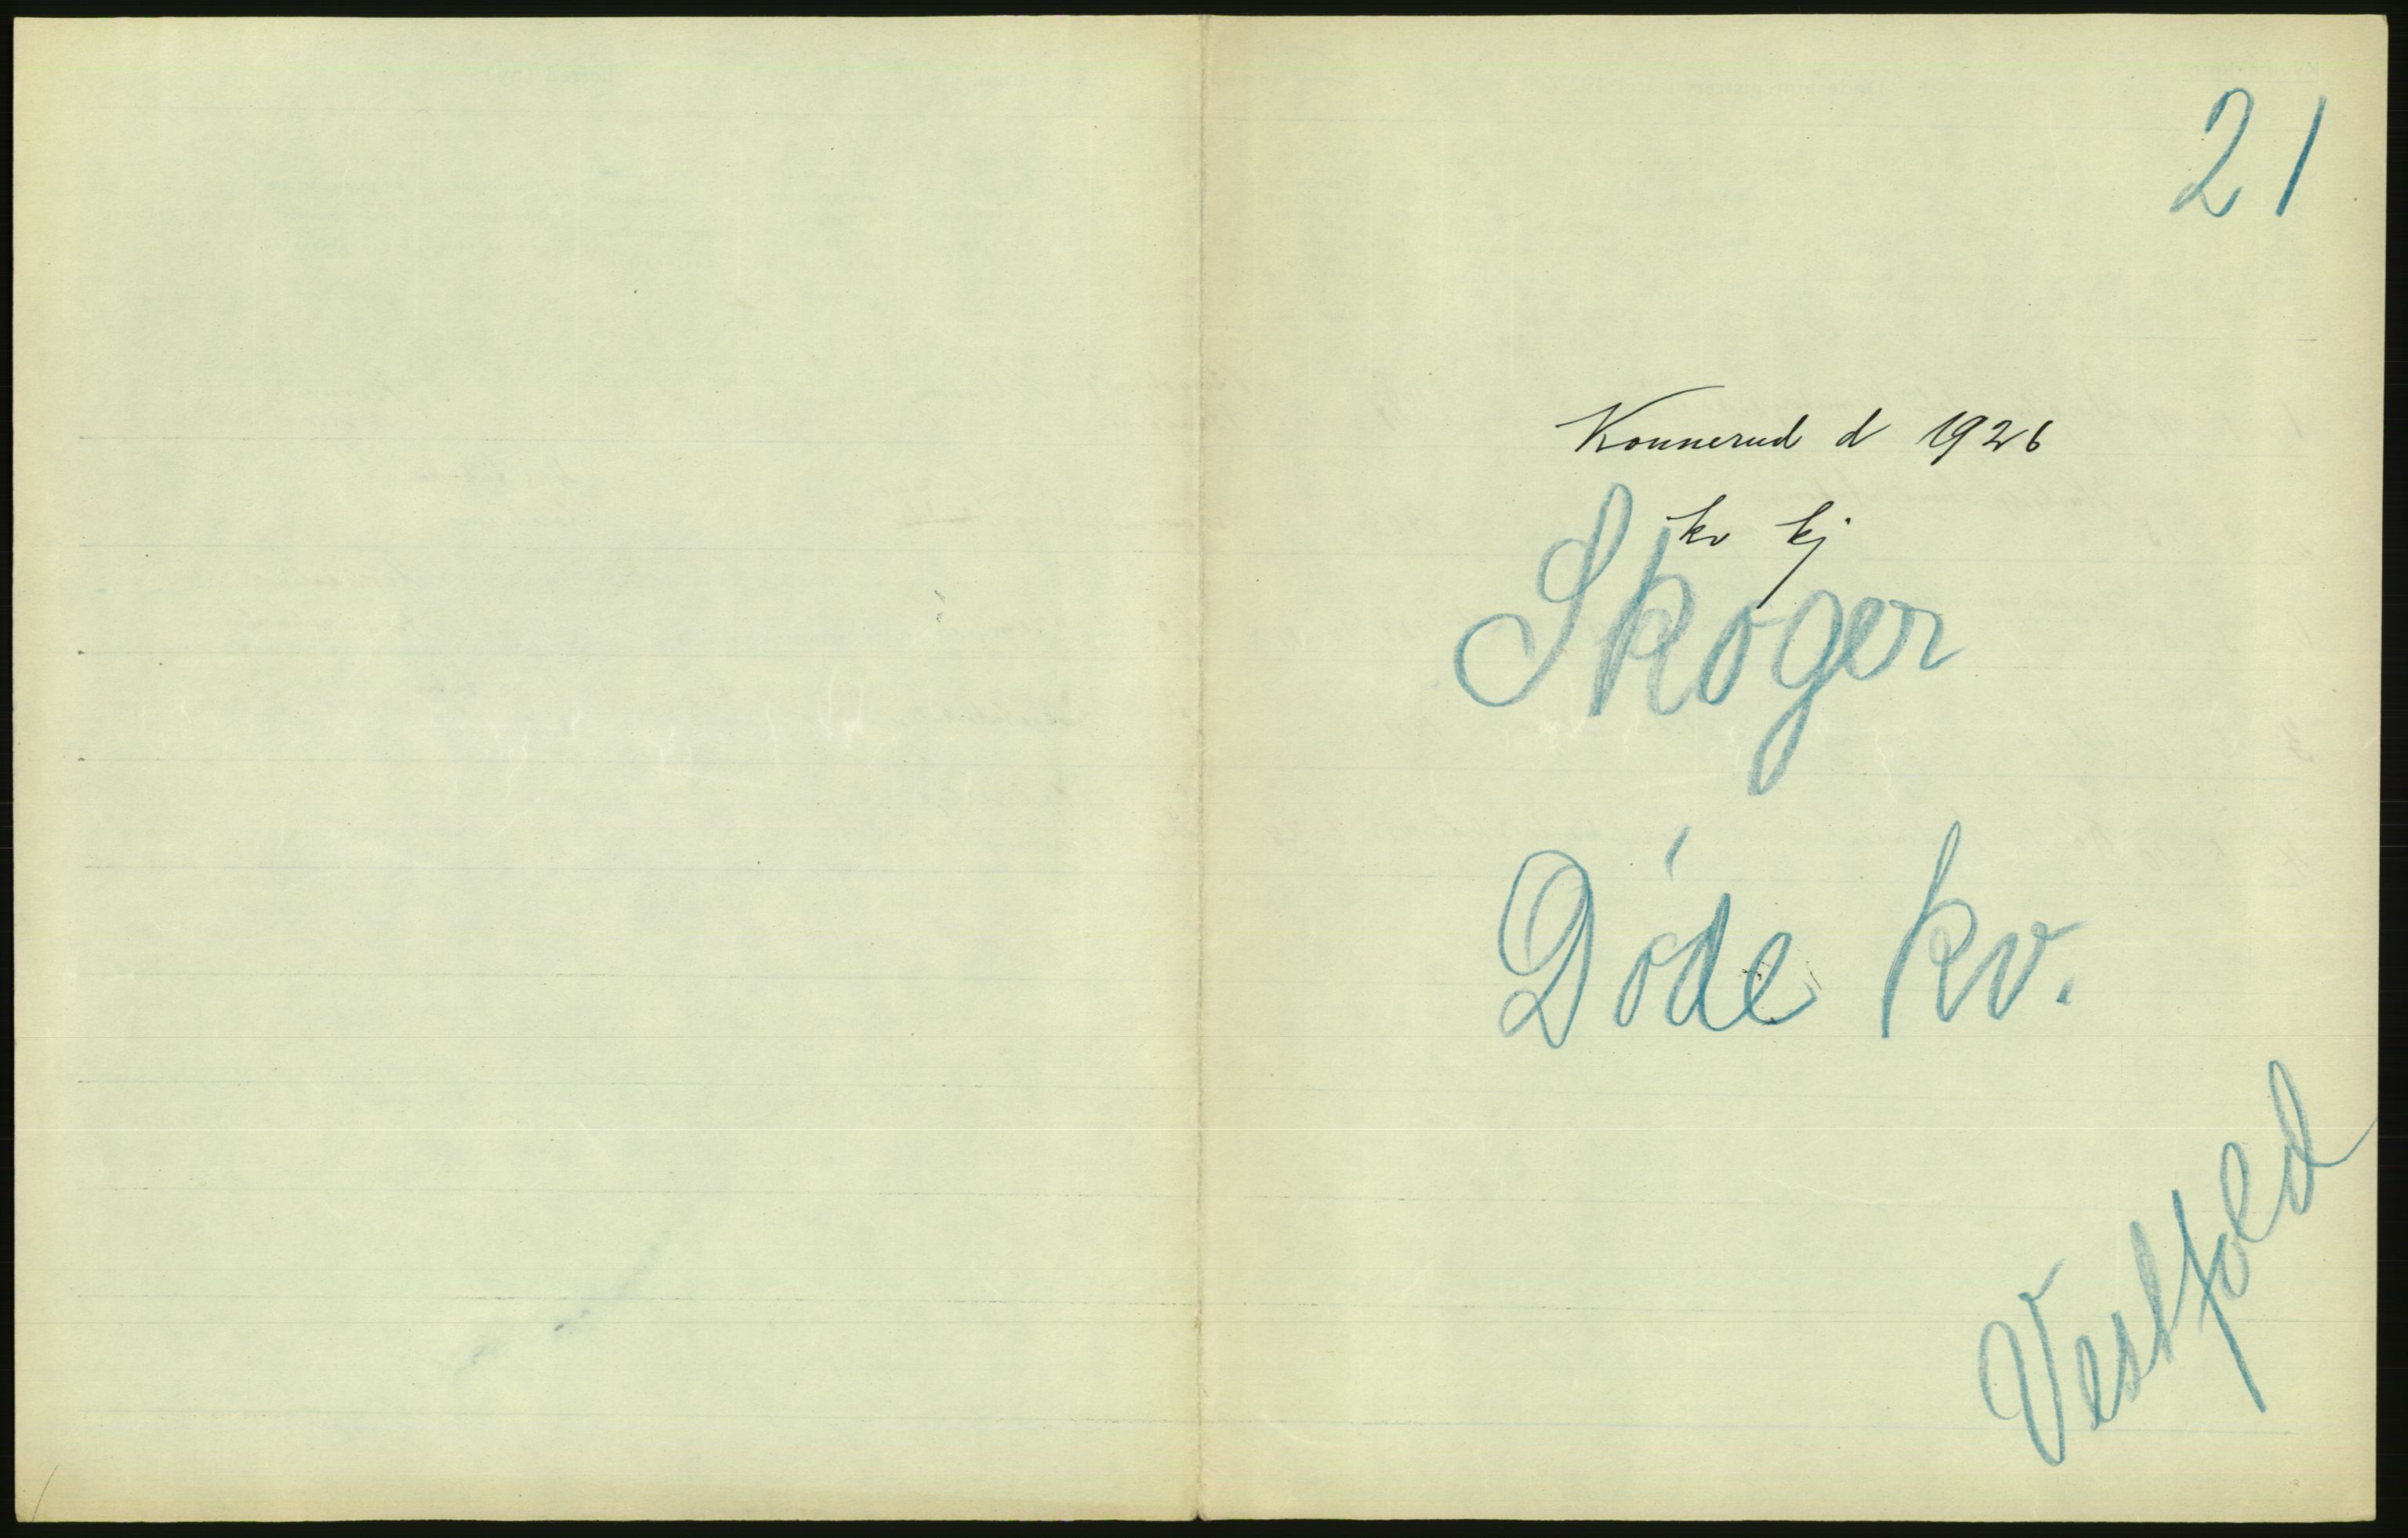 21
Konnerud d 1926
kv kj
Skoger
Døde kv.
Vestfold